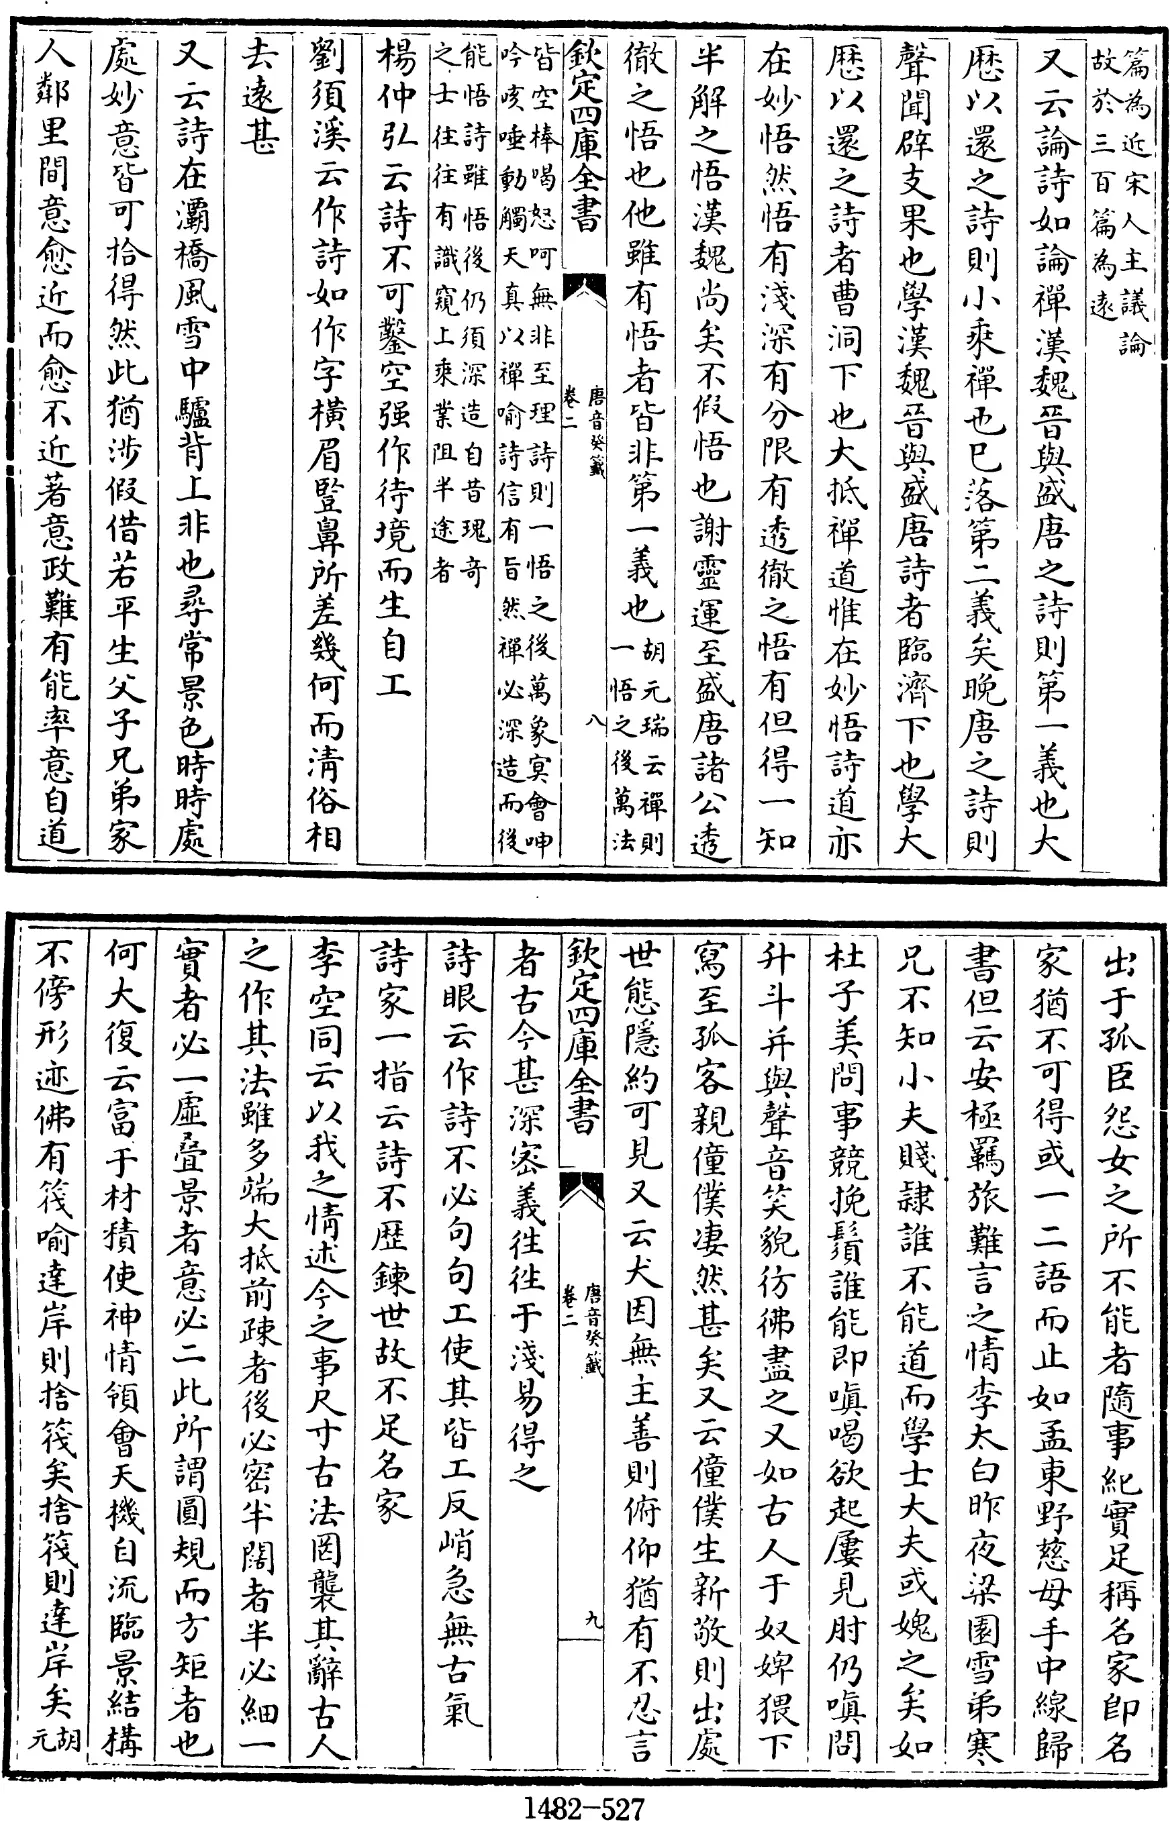 篇為近宋人主議論
故於三百篇為遠
又云論詩如論禪漢魏晉與盛唐之詩則第一義也大
厯以還之詩則小乘禪也已落第二義矣晚唐之詩則
聲聞辟支果也學漢魏晉與盛唐詩者臨濟下也學大
厯以還之詩者曹洞下也大抵禪道惟在妙悟詩道亦
在妙悟然悟有淺深有分限有透徹之悟有但得一知
半解之悟漢魏尚矣不假悟也謝靈運至盛唐諸公透
徹之悟也他雖有悟者皆非第一義也胡元瑞云禪則
一悟之後萬法
欽定四庫全書
唐音癸籤
卷二
八
皆空棒喝怒呵無非至理詩則一悟之後萬象冥會呻
吟咳唾動觸天真以禪喻詩信有旨然禪必深造而後
能悟詩雖悟後仍須深造自昔瑰奇
之士往往有識窺上乘業阻半途者
楊仲弘云詩不可鑿空强作待境而生自工
劉須溪云作詩如作字横眉豎鼻所差幾何而清俗相
去遠甚
又云詩在灞橋風雪中驢背上非也尋常景色時時處
處妙意皆可拾得然此猶涉假借若平生父子兄弟家
人鄰里間意愈近而愈不近著意政難有能率意自道
出于孤臣怨女之所不能者隨事紀實足稱名家卽名
家猶不可得或一二語而止如孟東野慈母手中線歸
書但云安極羈旅難言之情李太白昨夜梁園雪弟寒
兄不知小夫賤隸誰不能道而學士大夫或媿之矣如
杜子美問事競挽鬚誰能即嗔喝欲起屢見肘仍嗔問
升斗并與聲音笑貌彷彿盡之又如古人于奴婢猥下
寫至孤客親僮僕凄然甚矣又云僮僕生新敬則出處
世態隱約可見又云犬因無主善則俯仰猶有不忍言
欽定四庫全書
唐音癸籤
卷二
九
者古今甚深密義徃徃于淺易得之
詩眼云作詩不必句句工使其皆工反峭急無古氣
詩家一指云詩不歷鍊世故不足名家
李空同云以我之情述今之事尺寸古法罔襲其辭古人
之作其法雖多端大抵前疎者後必密半闊者半必細一
實者必一虛疊景者意必二此所謂圓規而方矩者也
何大復云富于材積使神情領會天機自流臨景結構
不傍形迹佛有筏喻達岸則捨筏矣捨筏則達岸矣胡
元
1482-527